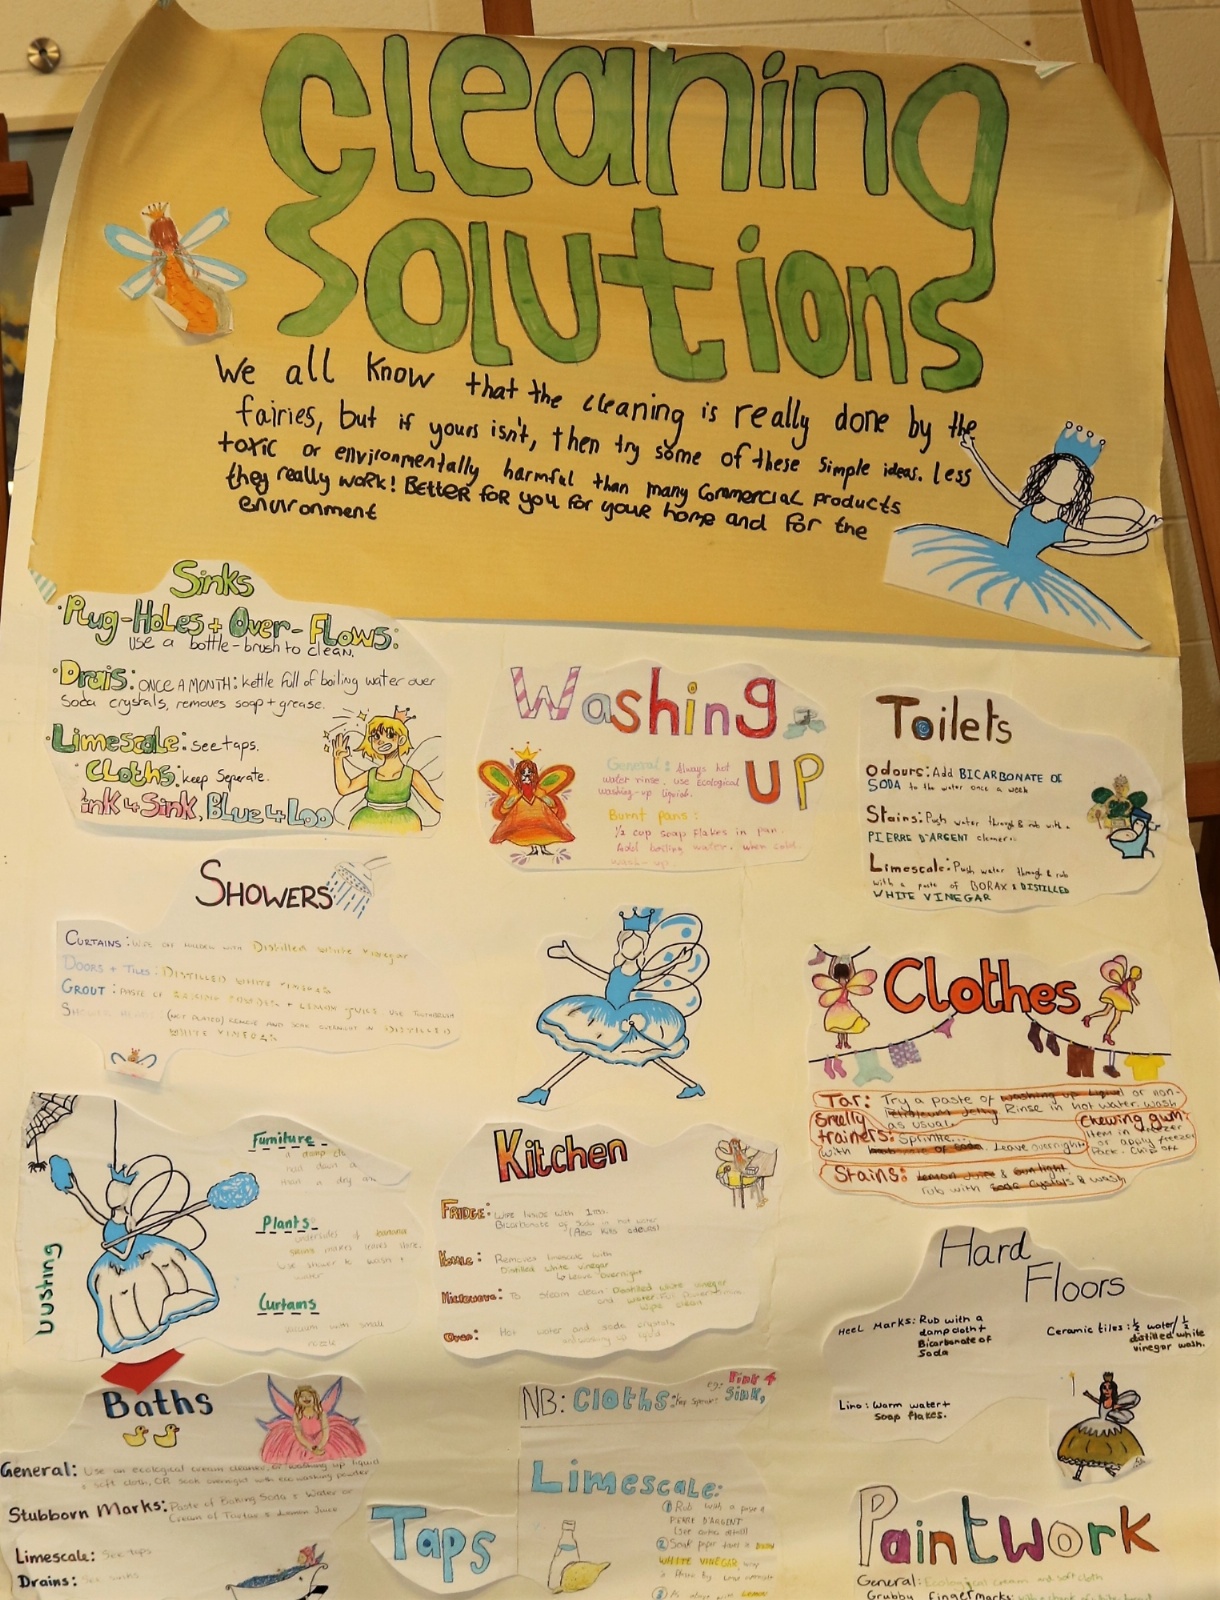 Cleaning
Solutions
We all know that the cleaning is really done by the
fairies, but if yours isn't, then try some of these simple ideas. Less
toxic or environmentally harmful than many commercial products
they really work! Better for you for your home and for the
environment
Sinks
Plug-Holes + Over-Flows:
use a bottle-brush to clean.
Drais: ONCE A MONTH: kettle full of boiling water over
Soda crystals, removes soap + grease.
Limescale: see taps.
Cloths: keep Seperate.
Pink 4 Sink, Blue 4 Loo
Washing
UP
General: Always hot
water rinse. use ecological
washing-up liquid.
Burnt pans:
1/2 cup soap flakes in pan.
Add boiling water. when cold.
wash-up
Toilets
Odours: Add BICARBONATE OF
SODA to the water once a week
Stains: Push water through & rub with
PIERRE D'ARGENT cleaner.
Limescale: Push water through & rub
with a paste of BORAX & DISTILLED
WHITE VINEGAR
SHOWERS
CURTAINS: with Distilled white vinegar
DOORS + TILES: DISTILLED WHITE VINEGAR
GROUT: PASTE OF + LEMON JUICE USE TOOTHBRUSH
(NOT PLATED) REMOVE AND SOAK OVERNIGHT IN DISTILLED
WHITE VINEGAR
Clothes
Tar: Try a paste of washing up liquid or non-
petroleum jelly Rinse in hot water. Wash
as usual
Smelly
trainers: Sprinkle...
with of soda. Leave overnight
Chewing gum:
Item in freezer
or apply freezer
Pack. Chip off
Stains: Lemon Juice & Sunlight.
rub with Soda Cystals & wash
Dusting
Furniture
a damp
than a dry
Plants
undersides of banana
makes leaves shine.
use shower to wash +
water
Curtains
vacuum with small
Kitchen
FRIDGE: wipe inside with
Bicarbonate of soda in hot water
(Also kills odours)
Remove limescale with
Distilled white vinegar
Leave overnight
Microwave: To steam clean Distilled white vinegar
and water
wipe clean
Oven: Hot water and soda crystals
Hard
Floors
Heel Marks: Rub with a
damp cloth +
Bicarbonate of
Soda
Ceramic tiles: 1/2 water/1/2
distilled white
vinegar wash.
Lino: Warm water +
soap flakes.
Baths
General: Use an ecological cream cleaner, or washing up liquid
+ soft cloth, OR soak overnight with eco washing powder
Stubborn Marks: Paste of Baking Soda + Water or
Cream of Tartar + Lemon Juice
Limescale: See taps
Drains: See sinks
Taps
NB: Cloths: eg: Pink 4
Sink,
Limescale:
① Rub with a paste
PIERRE D'ARGENT
② Soak paper
WHITE VINEGAR
③
Paintwork
General: Ecological cream and soft cloth
Grubby Fingermarks: